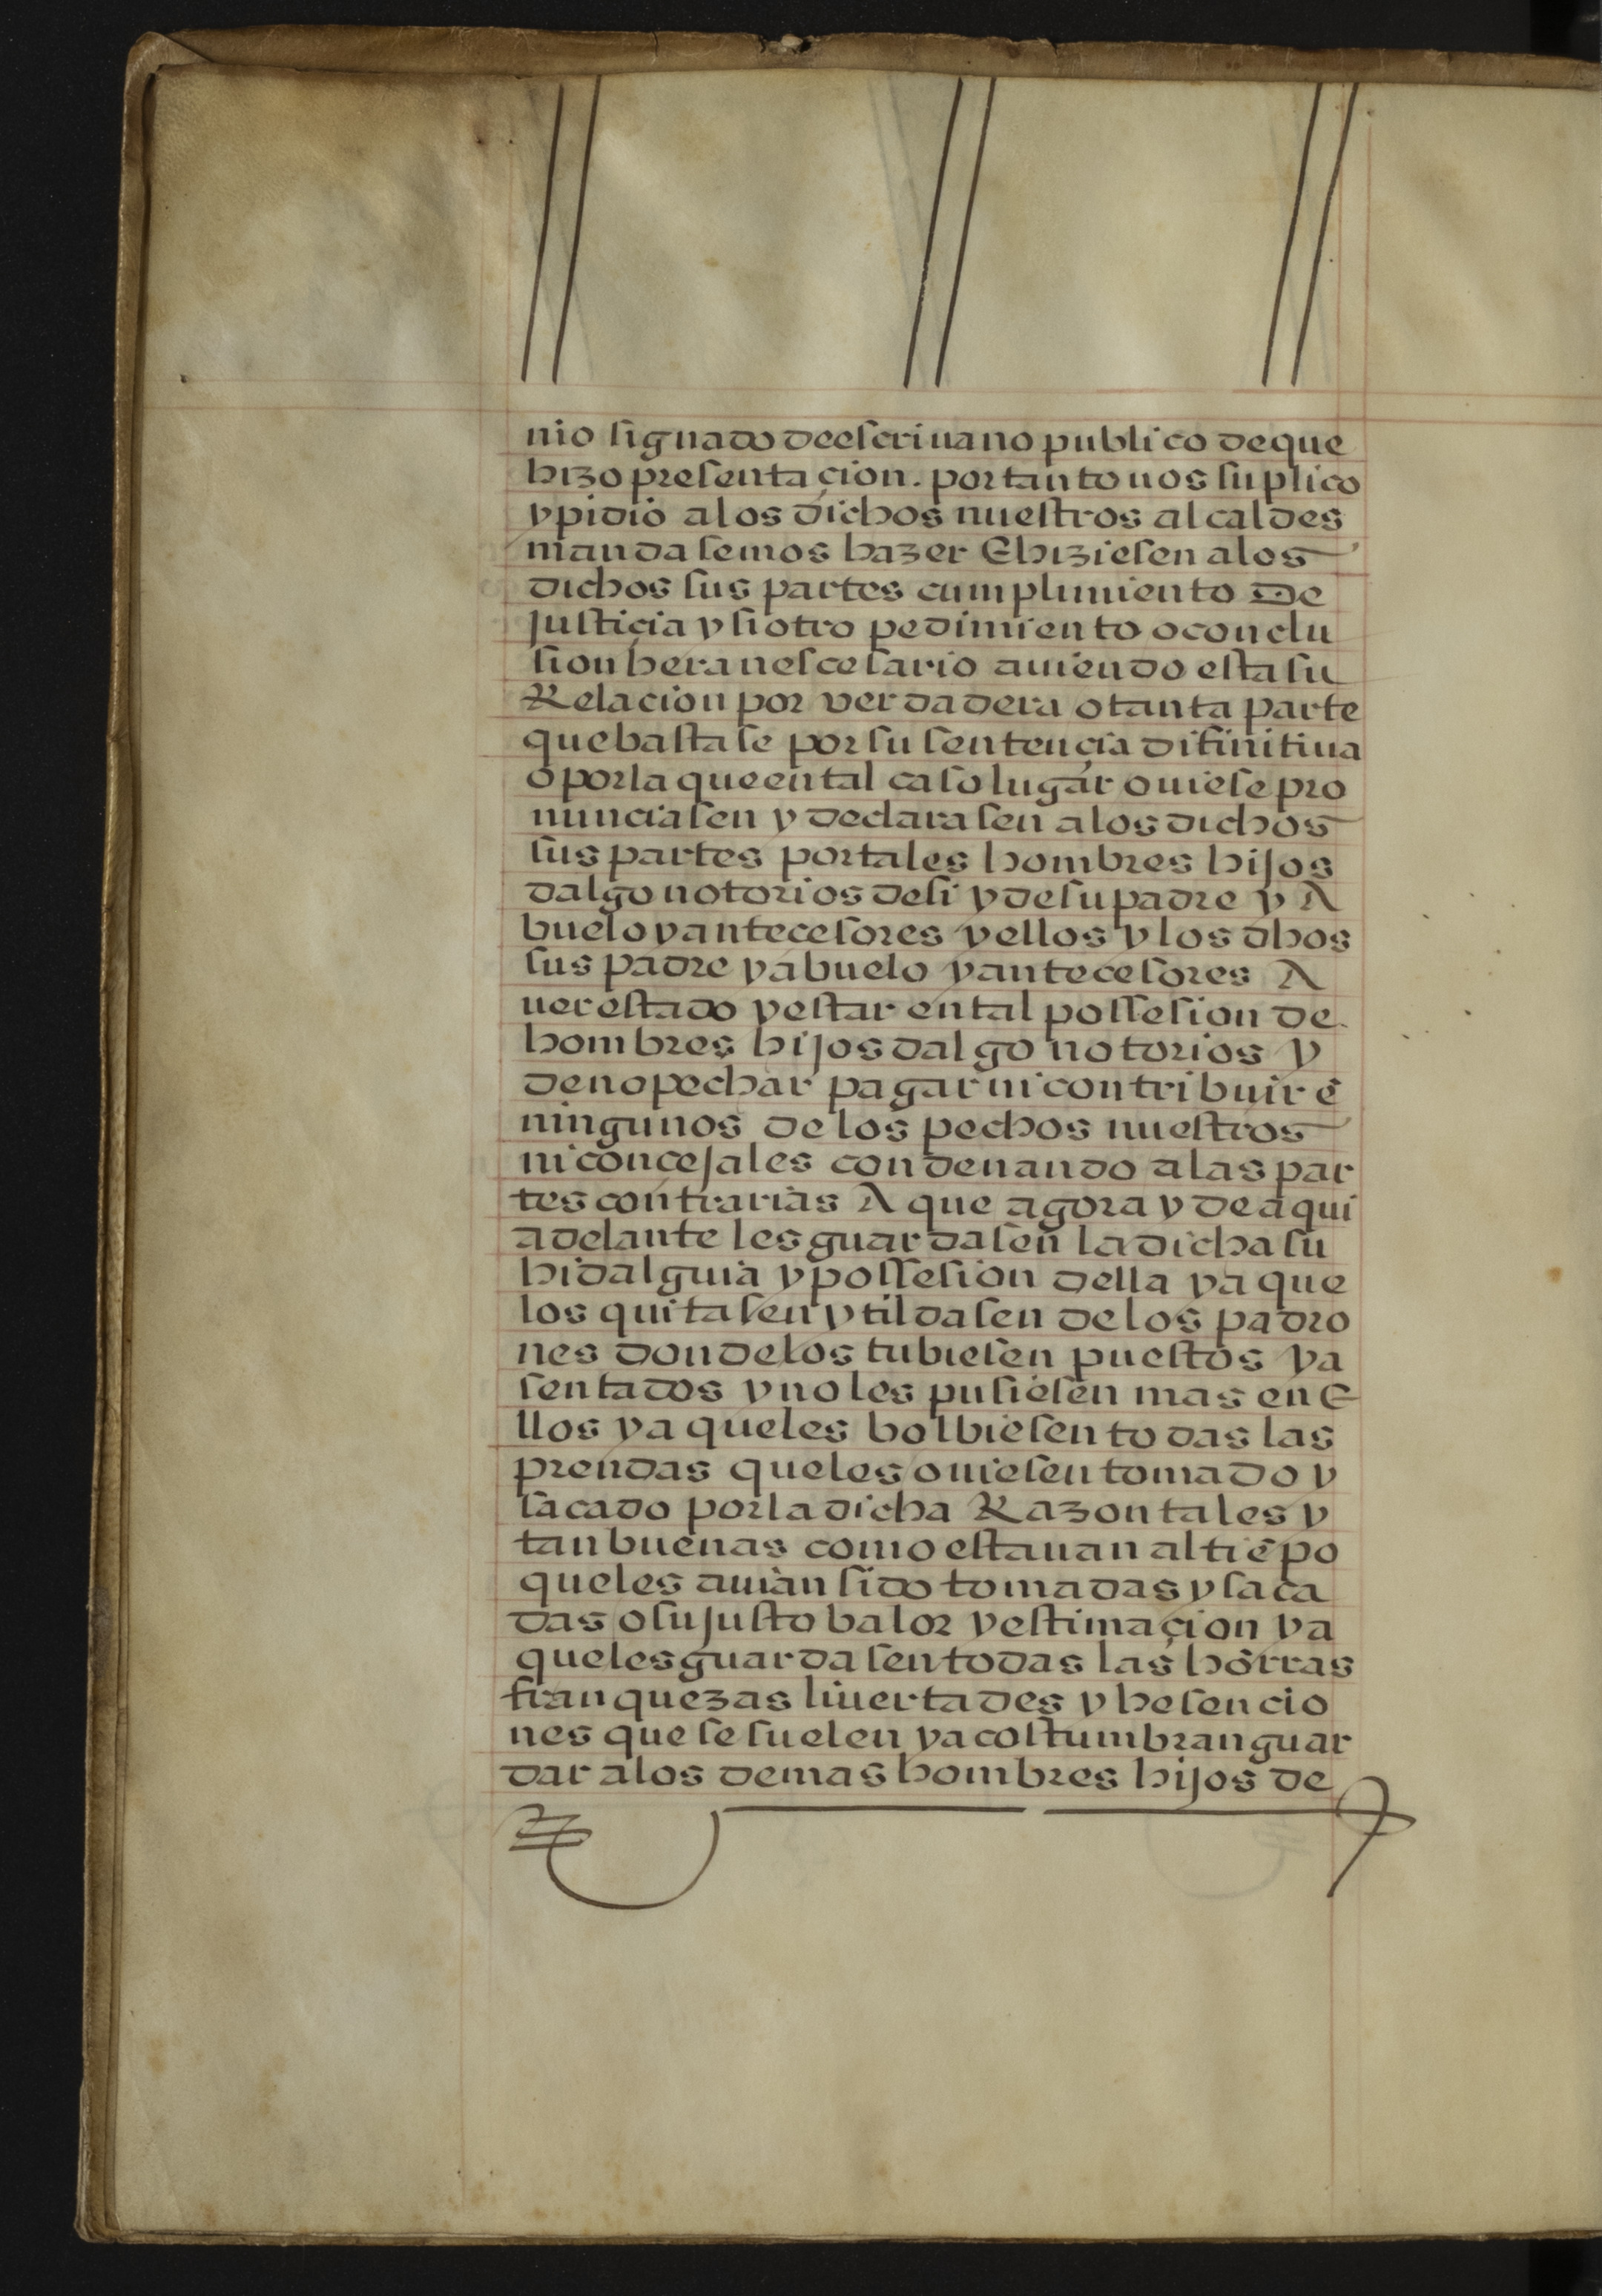 nio signado de escriuano publico de que
hizo presentaçion. por tanto nos suplico
y pidio a los dichos nuestros alcaldes
mandasemos hazer E hiziesen a los
dichos sus partes cumplimiento De
justiçia y si otro pedimiento o conclu
sion hera nescesario auiendo esta su
Relacion por verdadera o tanta parte
que bastase por su sentençia difinitiua
o por la que en tal caso lugar ouiese pro
nunciasen y declarasen a los dichos
sus partes por tales hombres hijos
dalgo notorios de si y de su padre y A
buelo y antecesores y ellos y los dhos
sus padre y abuelo y antecesores A
uer estado y estar en tal possesion de
hombres hijos dalgo notorios y
de no pechar pagar ni contribuir ē
ningunos de los pechos nuestros
ni conçejales condenando a las par
tes contrarias A que agora y de aqui
adelante les guardasen la dicha su
hidalguia y possesion della y a que
los quitasen y tildasen de los padro
nes donde los tubiesen puestos y a
sentados y no les pusiesen mas en E
llos y a que les bolbiesen todas las
prendas que les ouiesen tomado y
sacado por la dicha Razon tales y
tan buenas como estauan al tiēpo
que les auian sido tomadas y saca
das o su justo balor y estimaçion y a
que les guardasen todas las hōrras
franquezas liuertades y hesencio
nes que se suelen y acostumbran guar
dar a los demas hombres hijos de